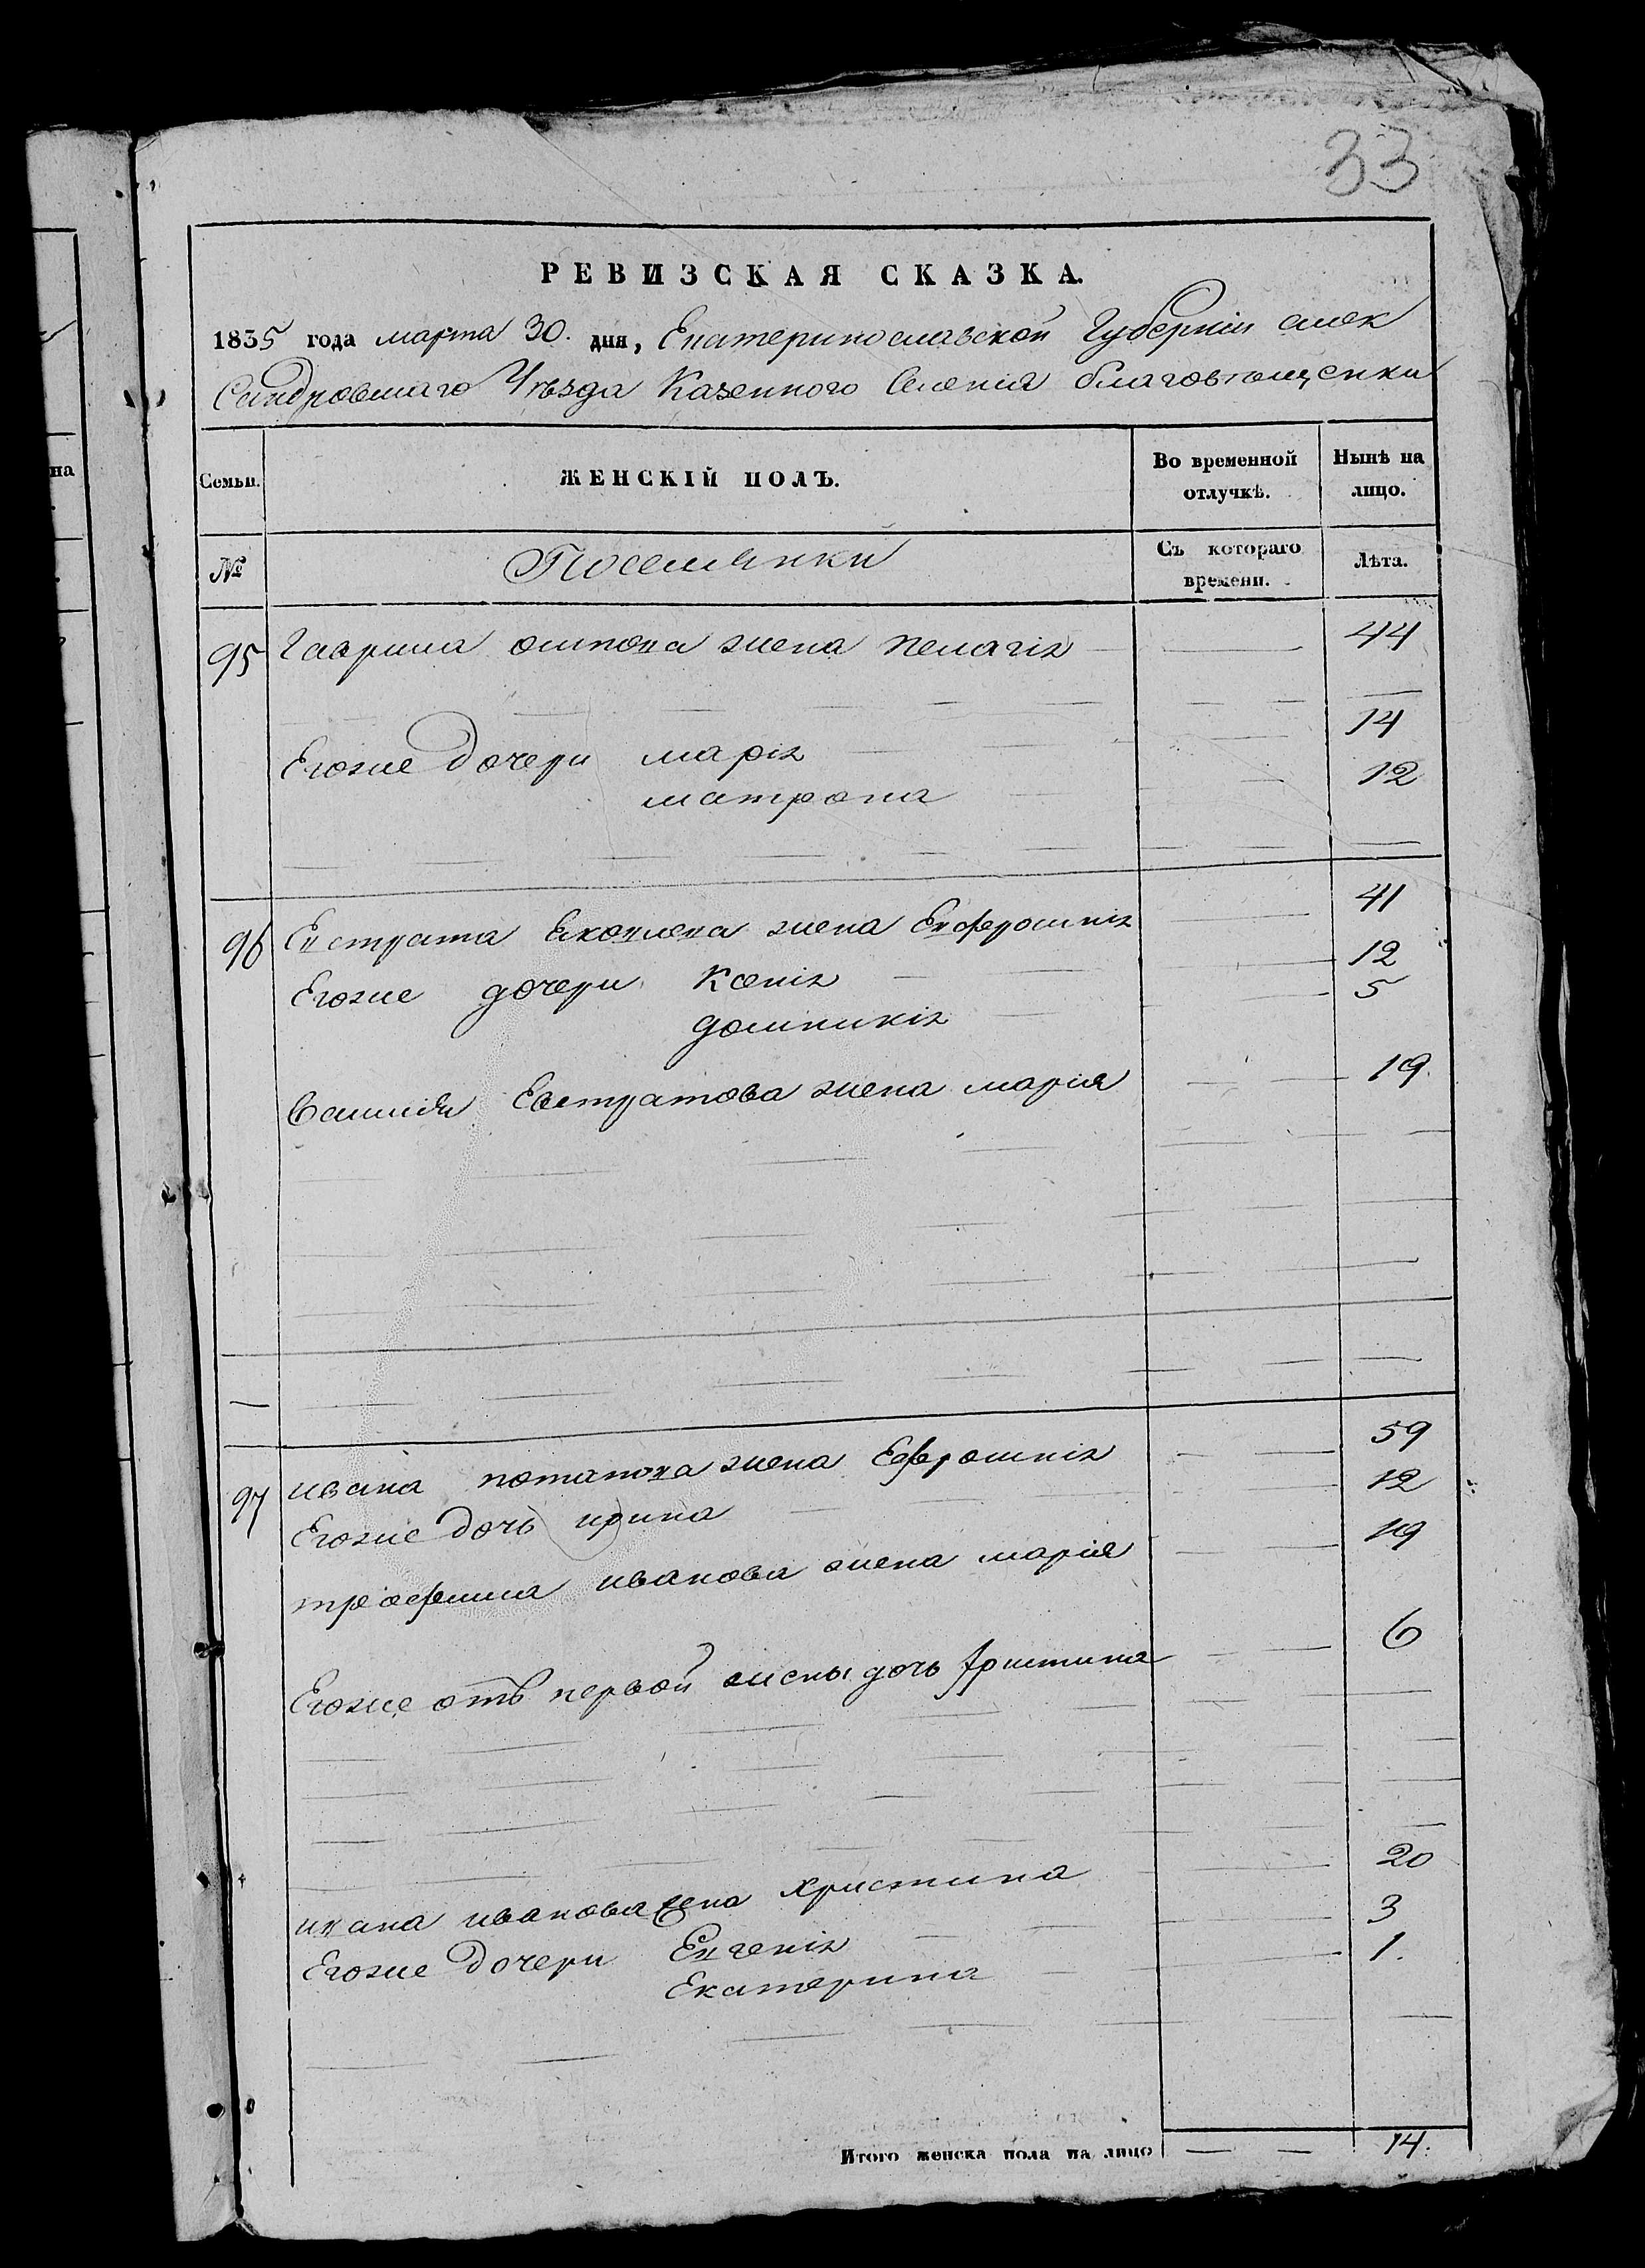 33
РЕВИЗСКАЯ СКАЗКА.
1835 года марта 30. дня, Екатеринославской Губерніи алек
Сандровшаго Уѣзда Казенного Селенія благовѣщенки
Семьи.
ЖЕНСКІЙ ПОЛЪ.
Во временной отлучкѣ.
Нынѣ на лицо.
№
Поселянки
Съ котораго времени.
Лѣта.
95 Гаврила осипова жена пелагія 44
Егоже дочери марія 14
матрона 12
96 Евстрата яковлева жена Евфросинія 41
Егоже дочери Ксенія 12
домникія 5
Василія Евстратова жена марія 19.
97 ивана потапова жена Ефросинія 59
Егоже дочь ирина 12
трофима иванова жена марія 19
Егоже отъ первой жены дочь христина 6
ивана иванова жена христина 20
Егоже дочери Евгенія 3
Екатерина 1.
Итого женска пола на лицо 14.
на